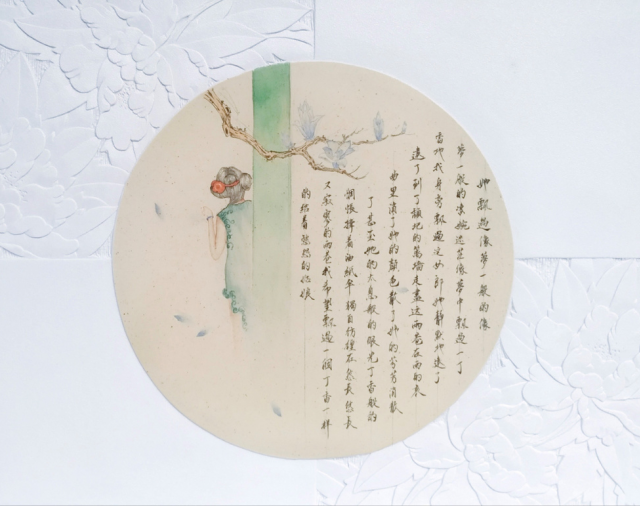 她飄過像夢一般的像
夢一般的淒婉迷茫像夢中飄過一丁
香地我身旁飄過這女郎她靜默地遠了
遠了到了頹圮的籬墻走盡這雨巷在雨的哀
曲里消了她的顏色散了她的芬芳消散
了甚至她的太息般的眼光丁香般的
惆悵撐著油紙傘獨自彷徨在悠長悠長
又寂寥的雨巷我希望飄過一個丁香一樣
的結著愁怨的姑娘